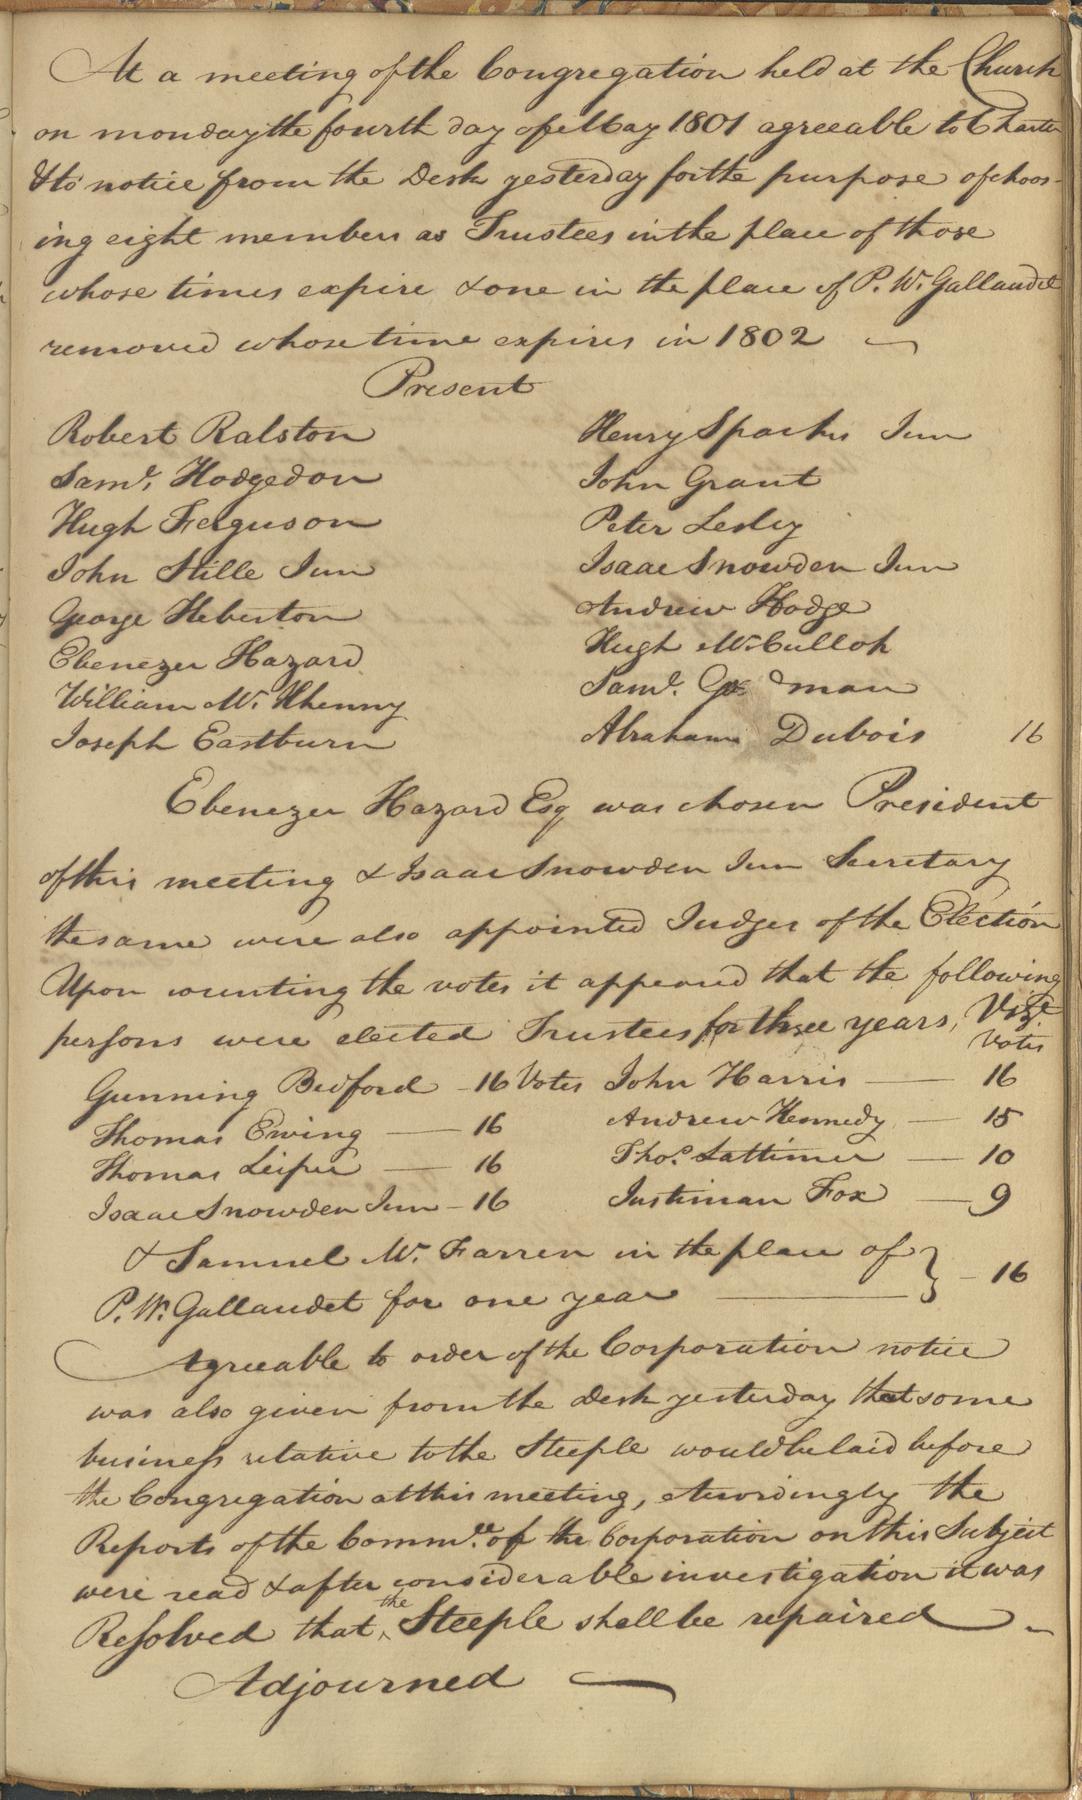 At a meeting of the Congregation held at the Church
on monday the fourth day of May 1801 agreeable to Charter
& to notice from the Desk yesterday for the purpose of choos-
ing eight members as Trustees in the place of those
whose times expire & one in the place of P. W. Gallaudet
removed whose time expires in 1802
Present
Robert Ralston
Henry Sparks Jun
Saml. Hodgedon
John Grant
Hugh Ferguson
Peter Lesley
John Stille Jun
Isaac Snowden Jun
George Heberton
Andrew Hodge
Ebenezer Hazard
Hugh McCulloh
William Mc Ilhenny
Saml.
Joseph Eastburn
Abraham Dubois 16
Ebenezer Hazard Esq was chosen President
of this meeting & Isaac Snowden Jun Secretary
the same were also appointed Judges of the Election
Upon counting the votes it appeared that the following
persons were elected Trustees for three years, Vizt
votes
Gunning Bedford - 16 Votes John Harris — 16
Thomas Ewing — 16 Andrew Kennedy — 15
Thomas Leiper — 16 Thos. Lattimer — 10
Isaac Snowden Jun - 16 Justinian Fox — 9
& Samuel Mc. Farren in the place of
P. W. Gallaudet for one year — } - 16
Agreeable to order of the Corporation notice
was also given from the desk yesterday that some
business relative to the Steeple would be laid before
the Congregation at this meeting, accordingly the
Reports of the Commee. of the Corporation on this Subject
were read & after considerable investigation it was
Resolved that the Steeple shall be repaired
Adjourned